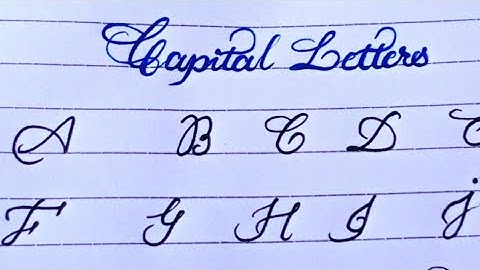 Capital Letters
A B C D
F G H I J